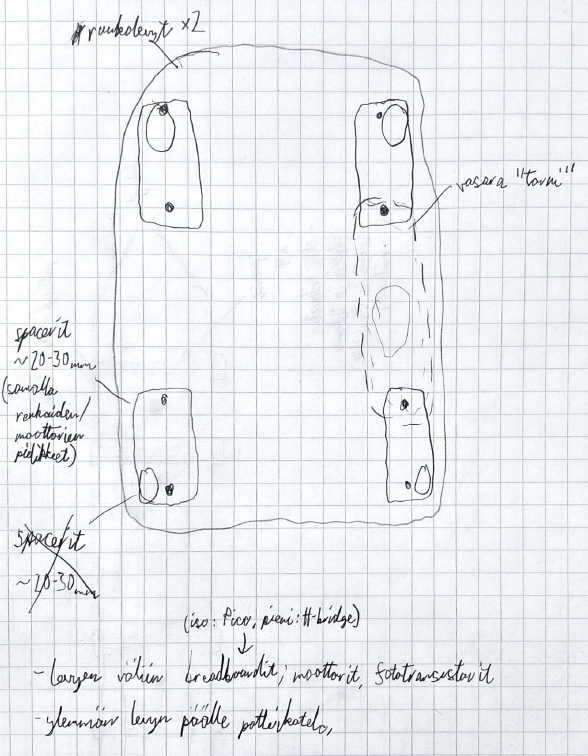 runkolevyt x2
vasara "torni"
spacerit
~20-30mm
(samalla
renkaiden/
moottorien
pidikkeet)
spacerit
~20-30mm
(iso: Pico, pieni: H-bridge)
- levyjen väliin breadboardit, moottorit, fototransistorit
- ylemmän levyn päälle patterikotelo,